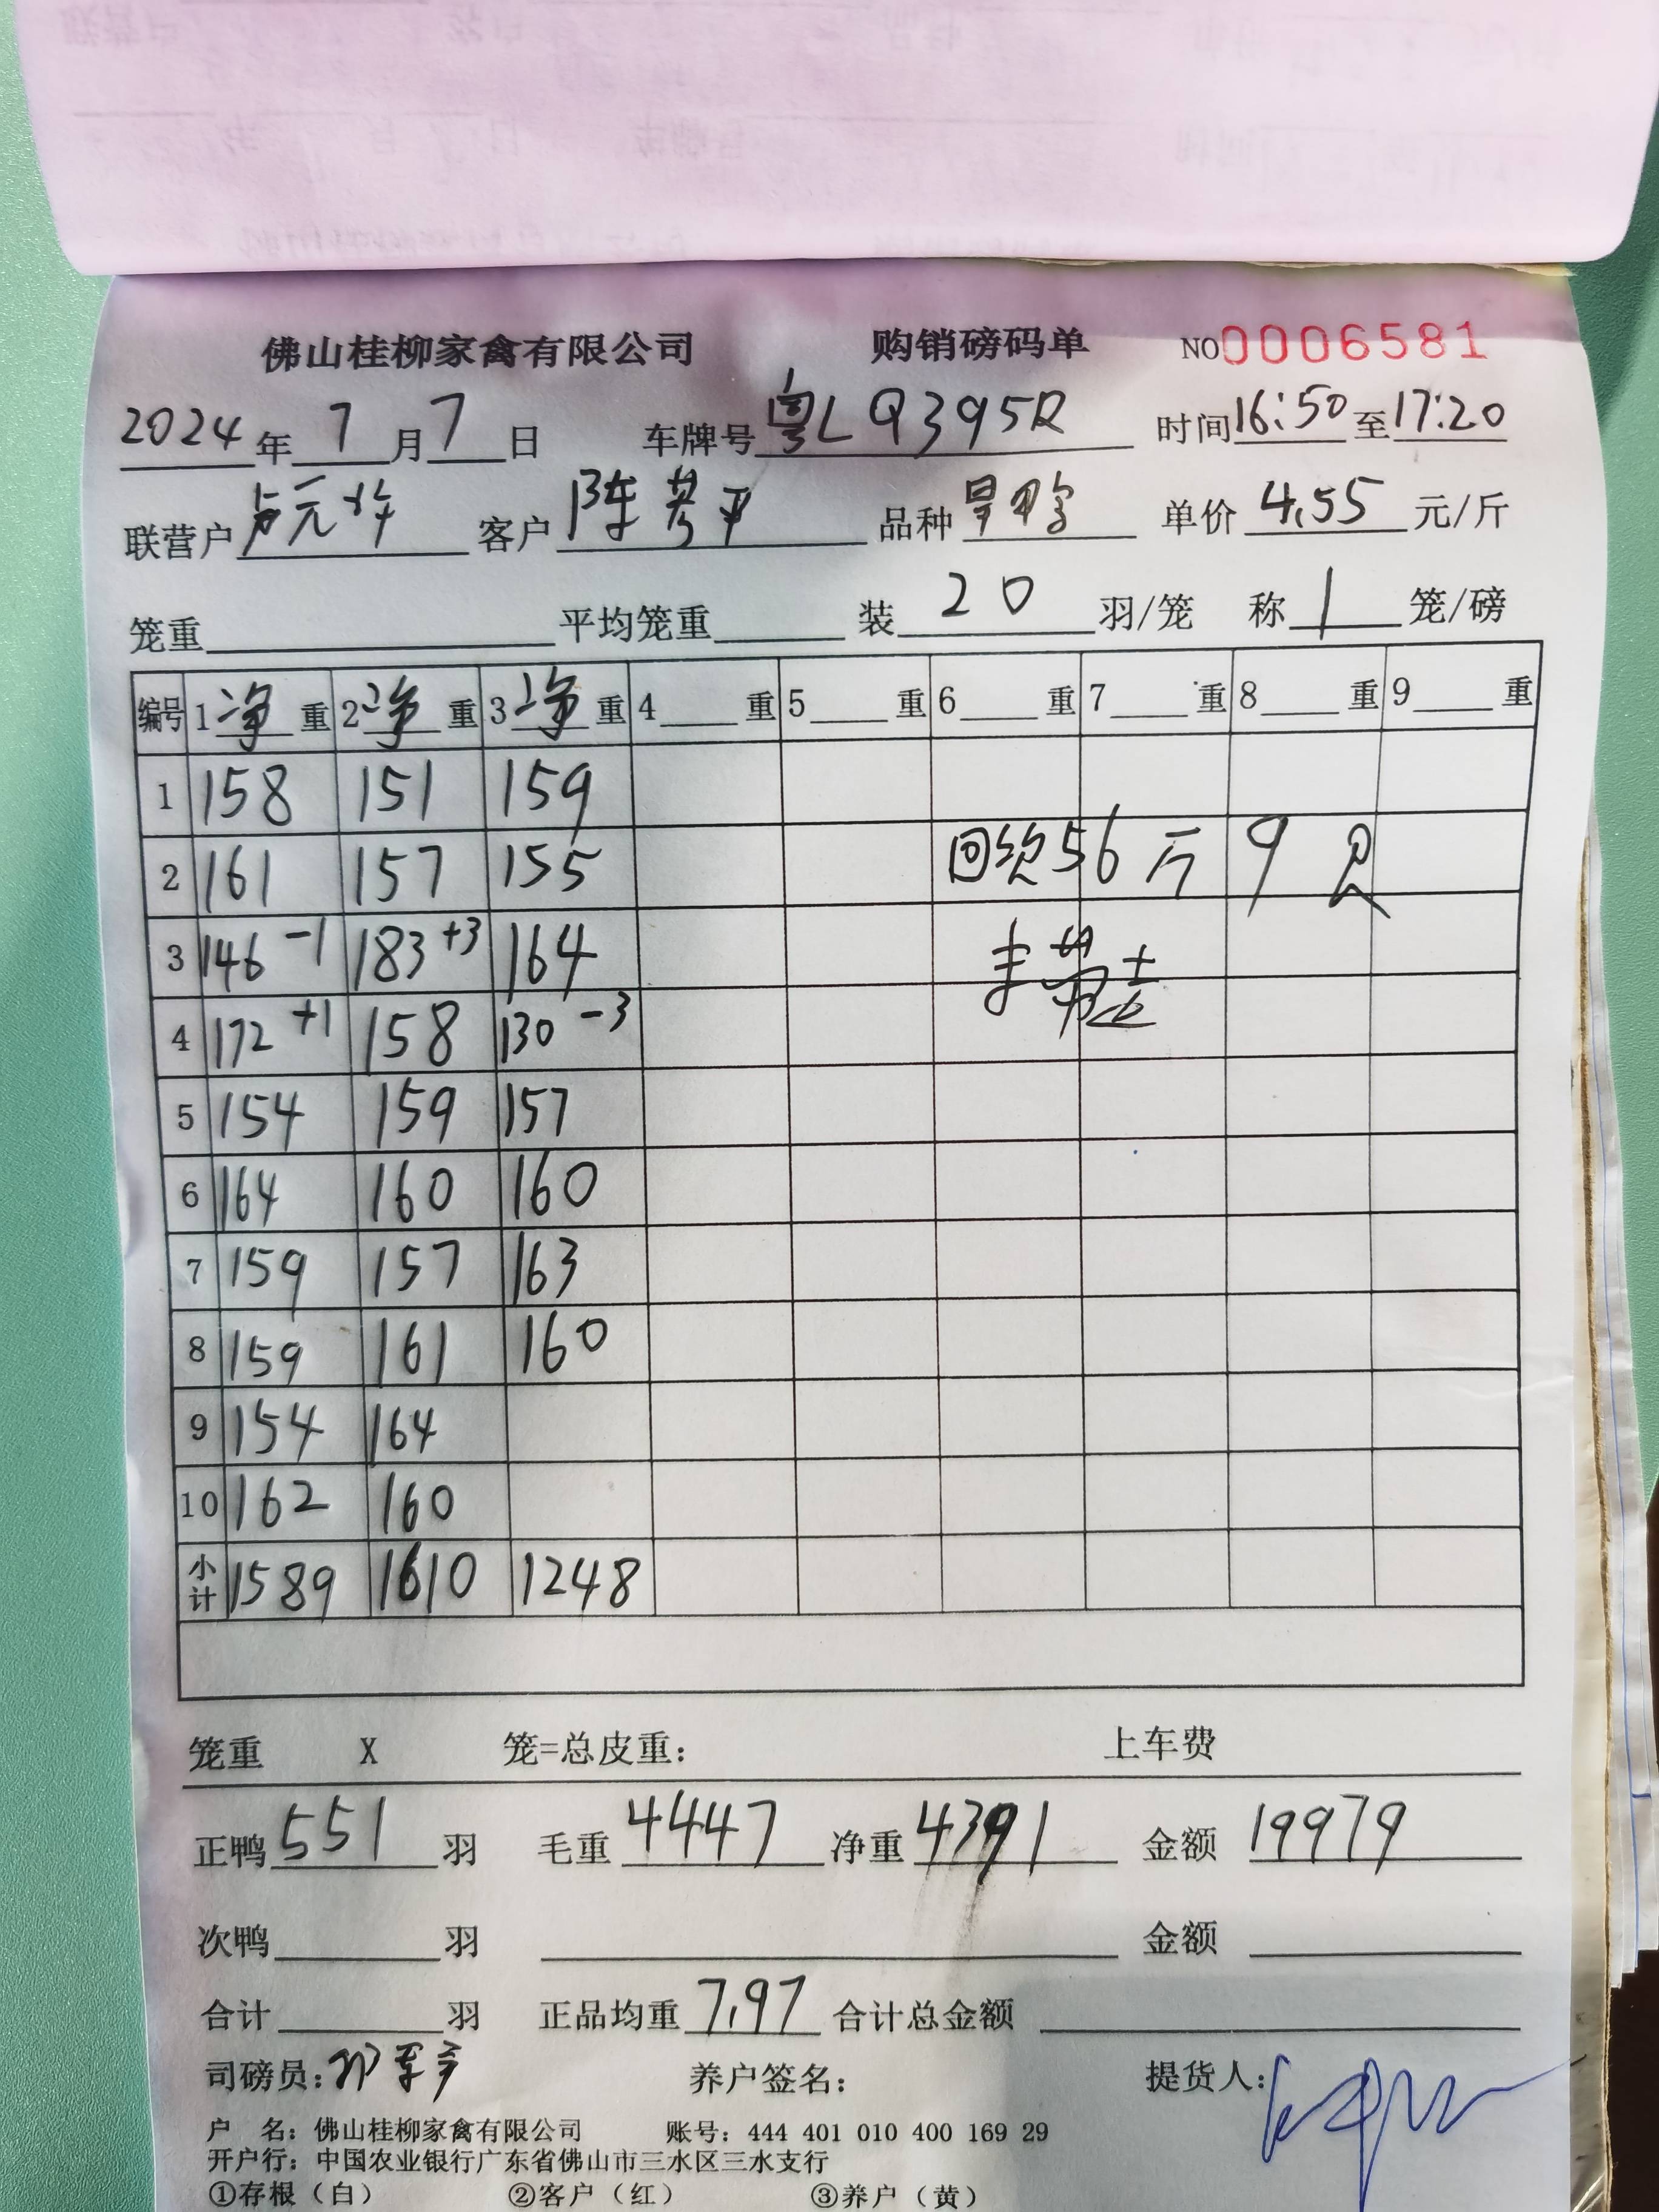 佛山桂柳家禽有限公司 购销磅码单 NO0006581
2024年7月7日 车牌号粤LQ395R 时间16:50至17:20
联营户卢元 客户陈 平 品种 单价4.55元/斤
笼重 平均笼重 装20羽/笼 称1笼/磅
编号 1净重 2净重 3净重 4重 5重 6重 7重 8重 9重
1 158 151 159
2 161 157 155 回 56斤 9只
3 146-1 183+3 164
4 172+1 158 130-3
5 154 159 157
6 164 160 160
7 159 157 163
8 159 161 160
9 154 164
10 162 160
小计 1589 1610 1248
笼重 X 笼=总皮重: 上车费
正鸭551羽 毛重4447 净重4391 金额19979
次鸭 羽 金额
合计 羽 正品均重7.97 合计总金额
司磅员: 养户签名: 提货人:
户 名: 佛山桂柳家禽有限公司 账号: 444 401 010 400 169 29
开户行: 中国农业银行广东省佛山市三水区三水支行
①存根（白） ②客户（红） ③养户（黄）